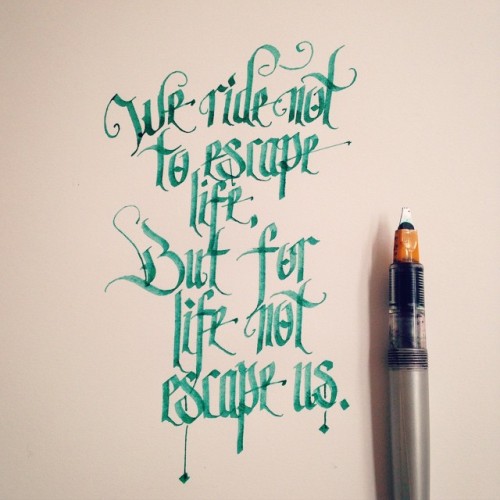 We ride not
to escape
life,
But for
life not
escape us.